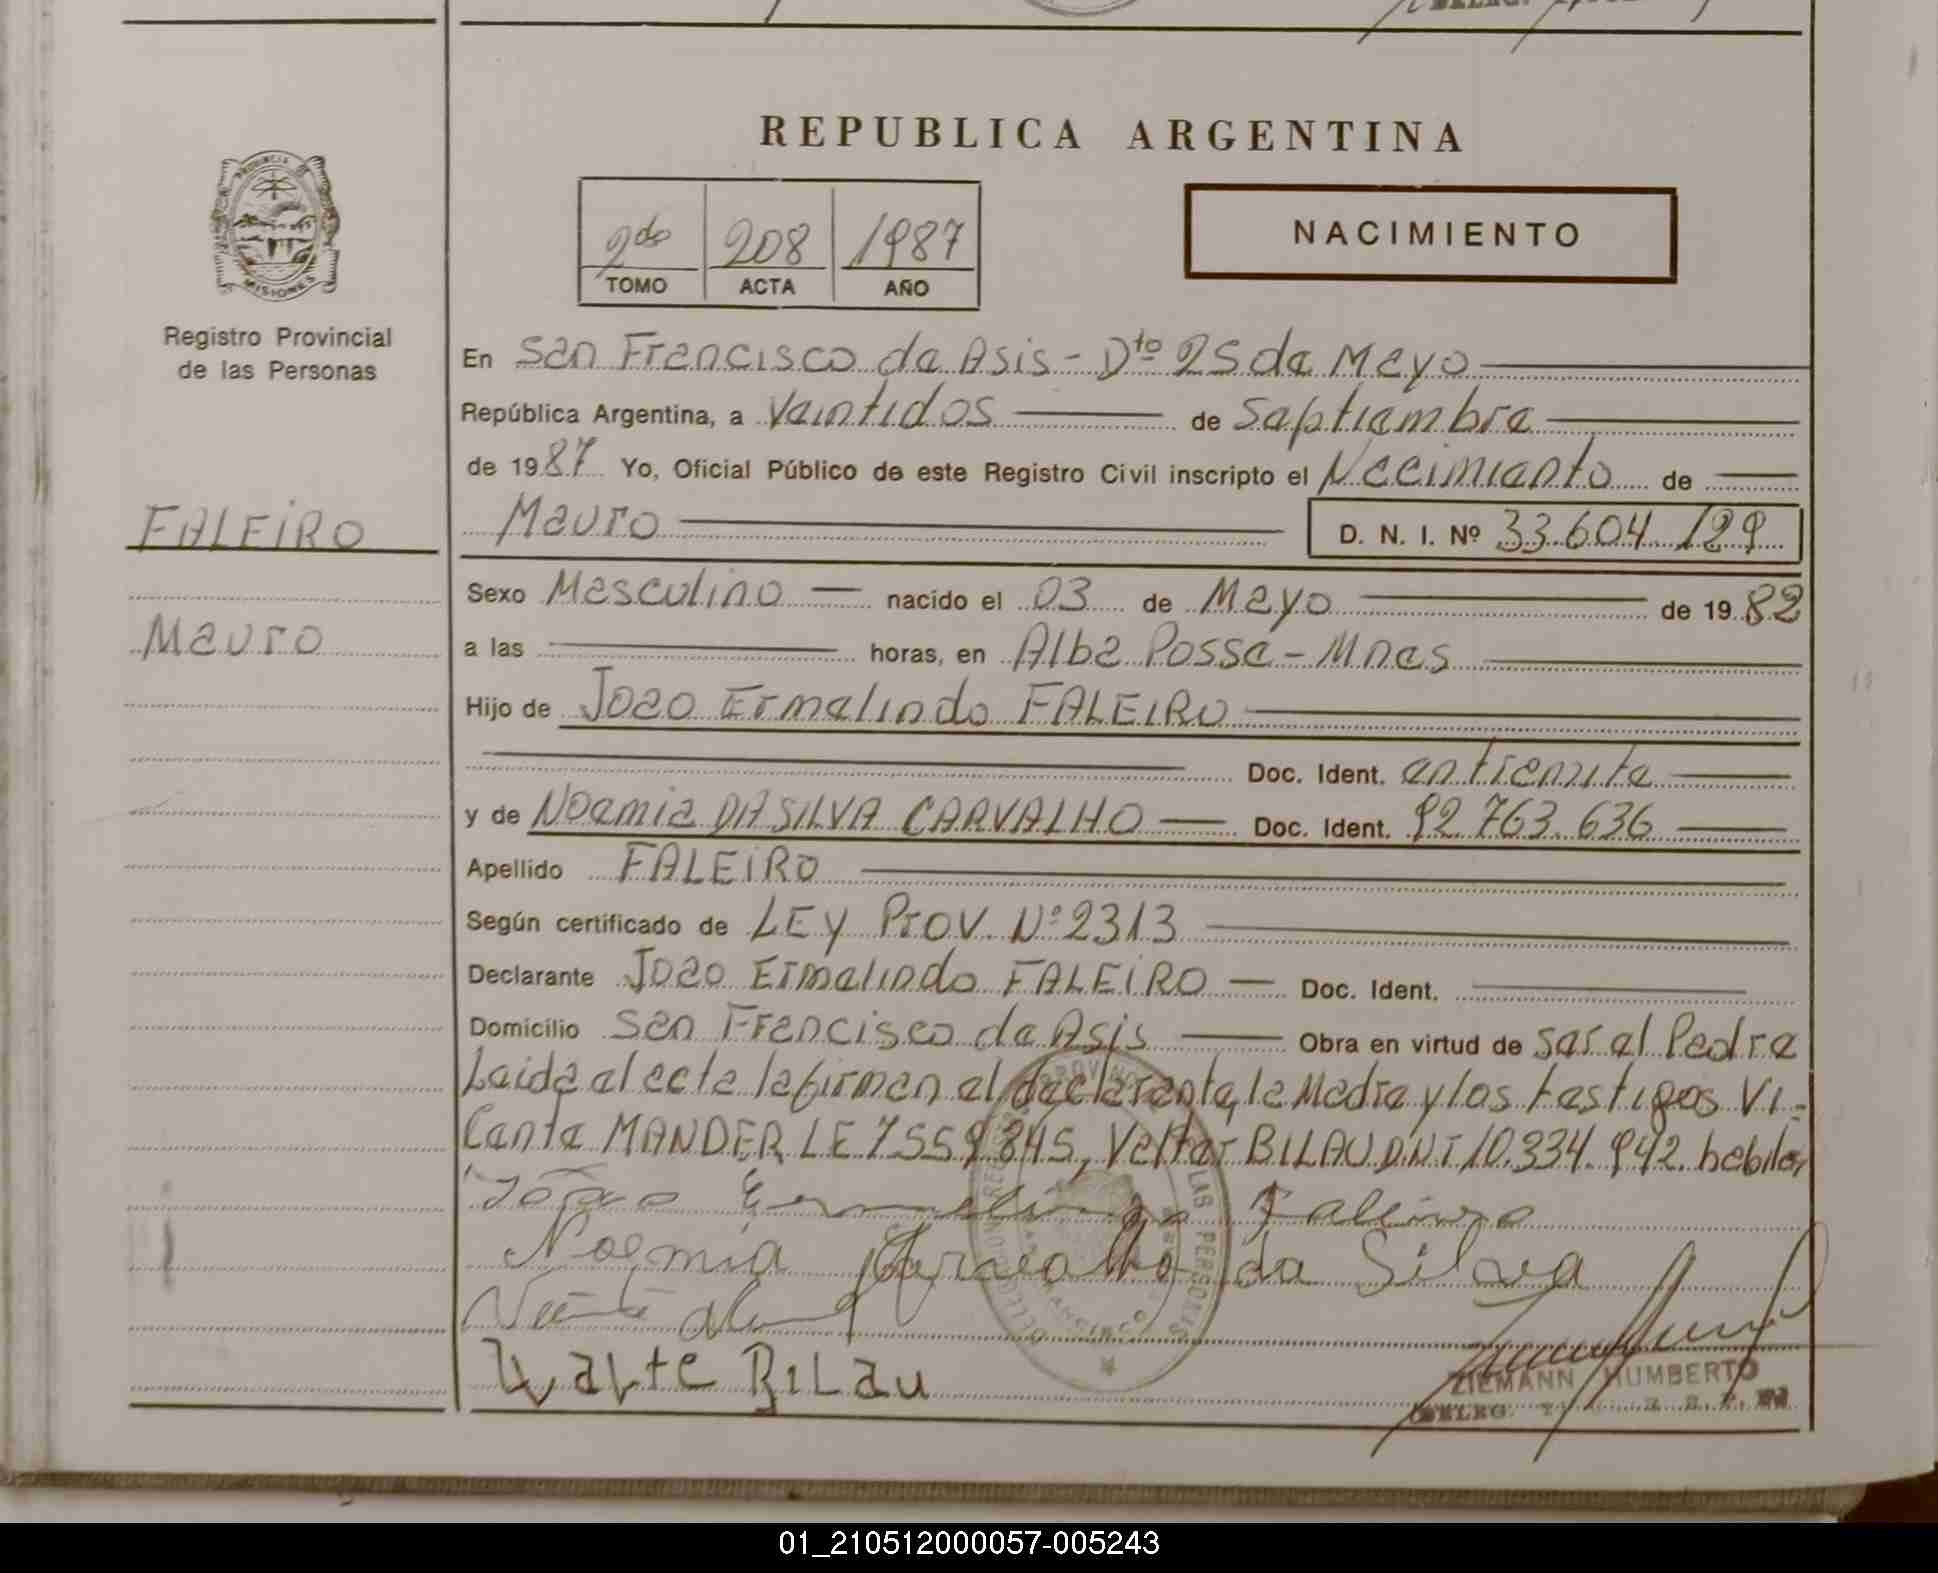 REPUBLICA ARGENTINA
PROVINCIA DE
MISIONES
Registro Provincial
de las Personas
2do 208 1987
TOMO ACTA AÑO
NACIMIENTO
En San Francisco de Asis - Dto 25 de Mayo
República Argentina, a Veintidos de Septiembre
de 1987 Yo, Oficial Público de este Registro Civil inscripto el Nacimiento de
FALEIRO
Mauro D. N. I. Nº 33.604.129
Sexo Masculino nacido el 03 de Mayo de 1982
Mauro
a las horas, en Alba Posse - Mnes
Hijo de Joao Ermelindo FALEIRO
Doc. Ident. en tramite
y de Noemia DA SILVA CARVALHO Doc. Ident. 92.763.636
Apellido FALEIRO
Según certificado de LEY Prov. Nº 2313
Declarante Joao Ermelindo FALEIRO Doc. Ident.
Domicilio San Francisco de Asis Obra en virtud de ser el Padre
Leida el acta la firman el declarante, la Madre y los testigos Vi-
cente MANDER LE 7559845, Velter BILAU D.N.I 10.334.942. habiles
João Ermelindo Faleiro
Noemia Carvalho da Silva
Walte BiLau
ZIEMANN HUMBERTO
DELEG.
01_210512000057-005243